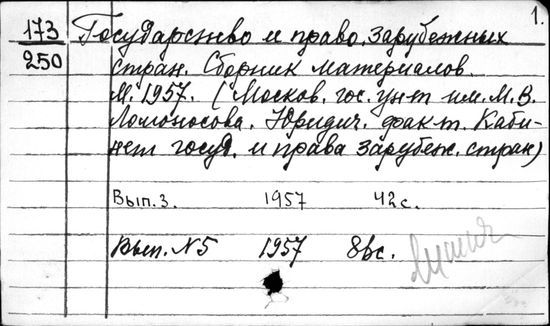 1.
173
250
Государство и право зарубежных
стран. Сборник материалов.
М. 1957. (Москов. гос. ун-т им. М. В.
Ломоносова. Юридич. фак-т. Каби-
нет госуд. и права зарубеж. стран)
Вып. 3. 1957 42 с.
Вып. №5 1957 86 с.